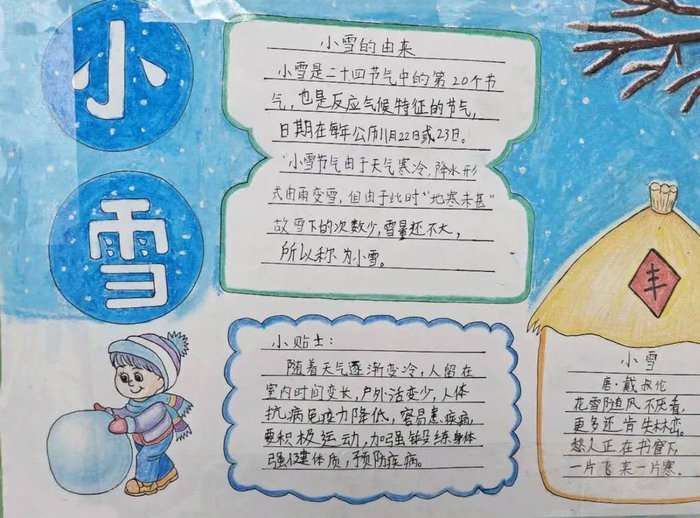 小
雪
小雪的由来
小雪是二十四节气中的第20个节
气，也是反应气候特征的节气，
日期在每年公历11月22日或23日。
小雪节气由于天气寒冷，降水形
式由雨变雪，但由于此时“地寒未甚”
故雪下的次数少，雪量还不大，
所以称为小雪。
小贴士：
随着天气逐渐变冷，人留在
室内时间变长，户外活变少，人体
抗病免疫力降低，容易患疾病，
要积极运动，加强锻练身体
强健体质，预防疾病。
丰
小雪
唐·戴叔伦
花雪随风不厌看，
更多还肯失林峦。
愁人正在书窗下，
一片飞来一片寒。